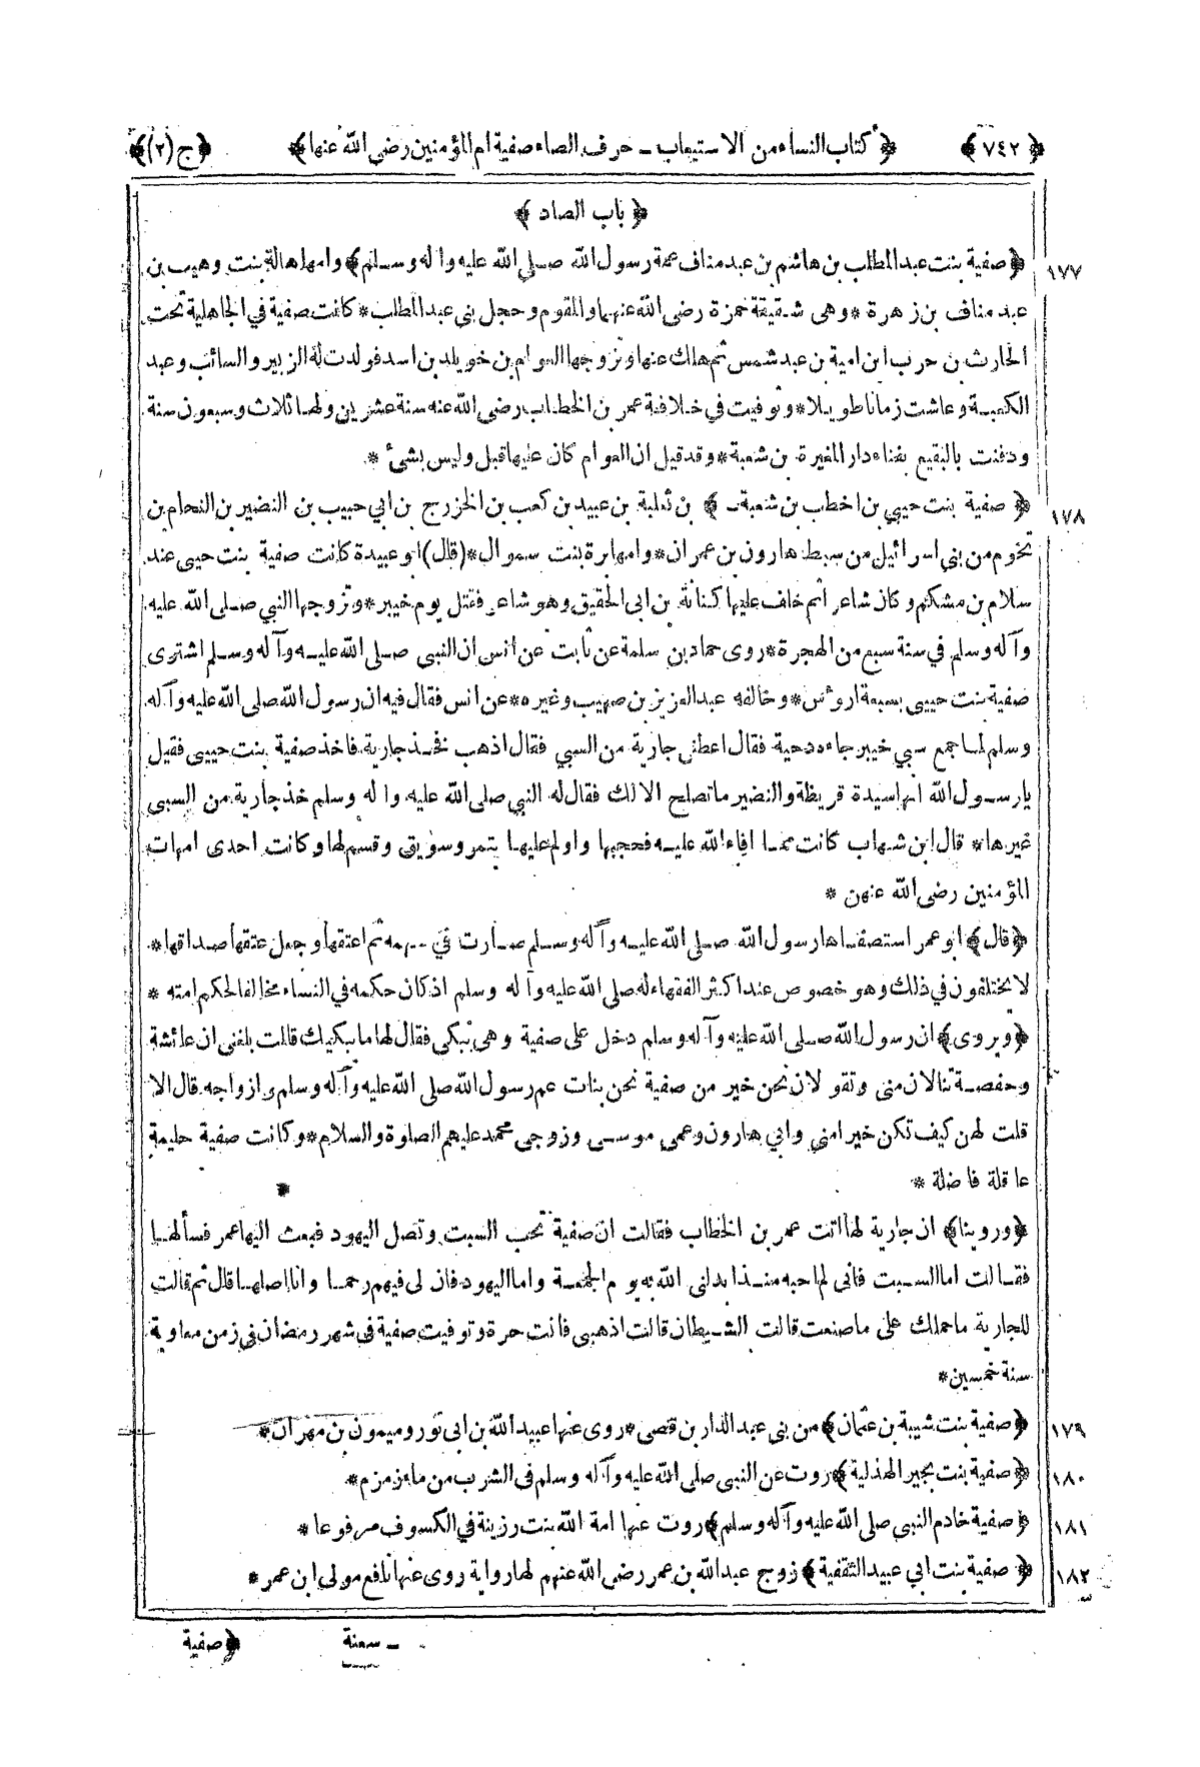 ﴿ ٧٤٢ ﴾ ﴿ كتاب النساء من الاستيعاب ـ حرف الصاد صفية ام المؤمنين رضى الله عنها ﴾ ﴿ ج (٢) ﴾
﴿ باب الصاد ﴾
١٧٧ ﴿ صفية بنت عبد المطلب بن هاشم بن عبد مناف عمة رسول الله صلى الله عليه واله وسلم ﴾ وامها هالة بنت وهيب بن
عبد مناف بن زهرة * وهى شقيقة حمزة رضى الله عنهما والمقوم وحجل بنى عبد المطلب * كانت صفية في الجاهلية تحت
الحارث بن حرب ابن امية بن عبد شمس ثم هلك عنها وتزوجها العوام بن خويلد بن اسد فولدت له الزبير والسائب وعبد
الكعبة وعاشت زمانا طويلا * وتوفيت في خلافة عمر بن الخطاب رضى الله عنه سنة عشرين ولها ثلاث وسبعون سنة
ودفنت بالبقيع بفناء دار المغيرة بن شعبة * وقد قيل ان العوام كان عليها قبل وليس بشئ *
١٧٨ ﴿ صفية بنت حيي بن اخطب بن شعبة ـ ﴾ بن ثعلبة بن عبيد بن كعب بن الخزرج بن ابي حبيب بن النضير بن النحام بن
تخوم من بنى اسرائيل من سبط هارون بن عمران * وامها برة بنت سموال * (قال) ابو عبيدة كانت صفية بنت حيى عند
سلام بن مشكم وكان شاعرا ثم خلف عليها كنانة بن ابى الحقيق وهو شاعر فقتل يوم خيبر * وتزوجها النبي صلى الله عليه
وآله وسلم في سنة سبع من الهجرة * روى حماد بن سلمة عن ثابت عن انس ان النبى صلى الله عليه وآله وسلم اشترى
صفية بنت حيى بسبعة ارؤس * وخالفه عبد العزيز بن صهيب وغيره * عن انس فقال فيه ان رسول الله صلى الله عليه وآله
وسلم لما جمع سبي خيبر جاءه دحية فقال اعطنى جارية من السبي فقال اذهب فخذ جارية فاخذ صفية بنت حيى فقيل
يا رسول الله انها سيدة قريظة والنضير ما تصلح الا لك فقال له النبي صلى الله عليه واله وسلم خذ جارية من السبي
غيرها * قال ابن شهاب كانت مما افاء الله عليه فحجبها واولم عليها بتمر وسويق وقسم لها وكانت احدى امهات
المؤمنين رضى الله عنهن *
﴿ قال ﴾ ابو عمر استصفاها رسول الله صلى الله عليه وآله وسلم صارت في سهمه ثم اعتقها وجعل عتقها صداقها *
لا يختلفون في ذلك وهو خصوص عند اكثر الفقهاء له صلى الله عليه وآله وسلم اذ كان حكمه في النساء مخالفا لحكم امته *
﴿ ويروى ﴾ ان رسول الله صلى الله عليه وآله وسلم دخل على صفية وهى تبكى فقال لها ما يبكيك قالت بلغنى ان عائشة
وحفصة تنالان منى وتقولان نحن خير من صفية نحن بنات عم رسول الله صلى الله عليه وآله وسلم وازواجه قال الا
قلت لهن كيف تكن خيرا منى وابي هارون وعمى موسى وزوجى محمد عليهم الصلوة والسلام * وكانت صفية حليمة
عاقلة فاضلة *
﴿ وروينا ﴾ ان جارية لها اتت عمر بن الخطاب فقالت ان صفية تحب السبت وتصل اليهود فبعث اليها عمر فسألها
فقالت اما السبت فانى لم احبه منذ ابدلنى الله به يوم الجمعة واما اليهود فان لى فيهم رحما وانا اصلها قال ثم قالت
للجارية ما حملك على ما صنعت قالت الشيطان قالت اذهبى فانت حرة وتوفيت صفية فى شهر رمضان في زمن معاوية
سنة خمسين *
١٧٩ ﴿ صفية بنت شيبة بن عثمان ﴾ من بنى عبد الدار بن قصى * روى عنها عبيد الله بن ابى ثور وميمون بن مهران *
١٨٠ ﴿ صفية بنت بجير الهذلية ﴾ روت عن النبى صلى الله عليه وآله وسلم فى الشرب من ماء زمزم *
١٨١ ﴿ صفية خادم النبى صلى الله عليه وآله وسلم ﴾ روت عنها امة الله بنت رزينة في الكسوف مرفوعا *
١٨٢ ﴿ صفية بنت ابي عبيد الثقفية ﴾ زوج عبد الله بن عمر رضى الله عنهم لها رواية روى عنها نافع مولى ابن عمر *
ـ سعنة ﴿ صفية